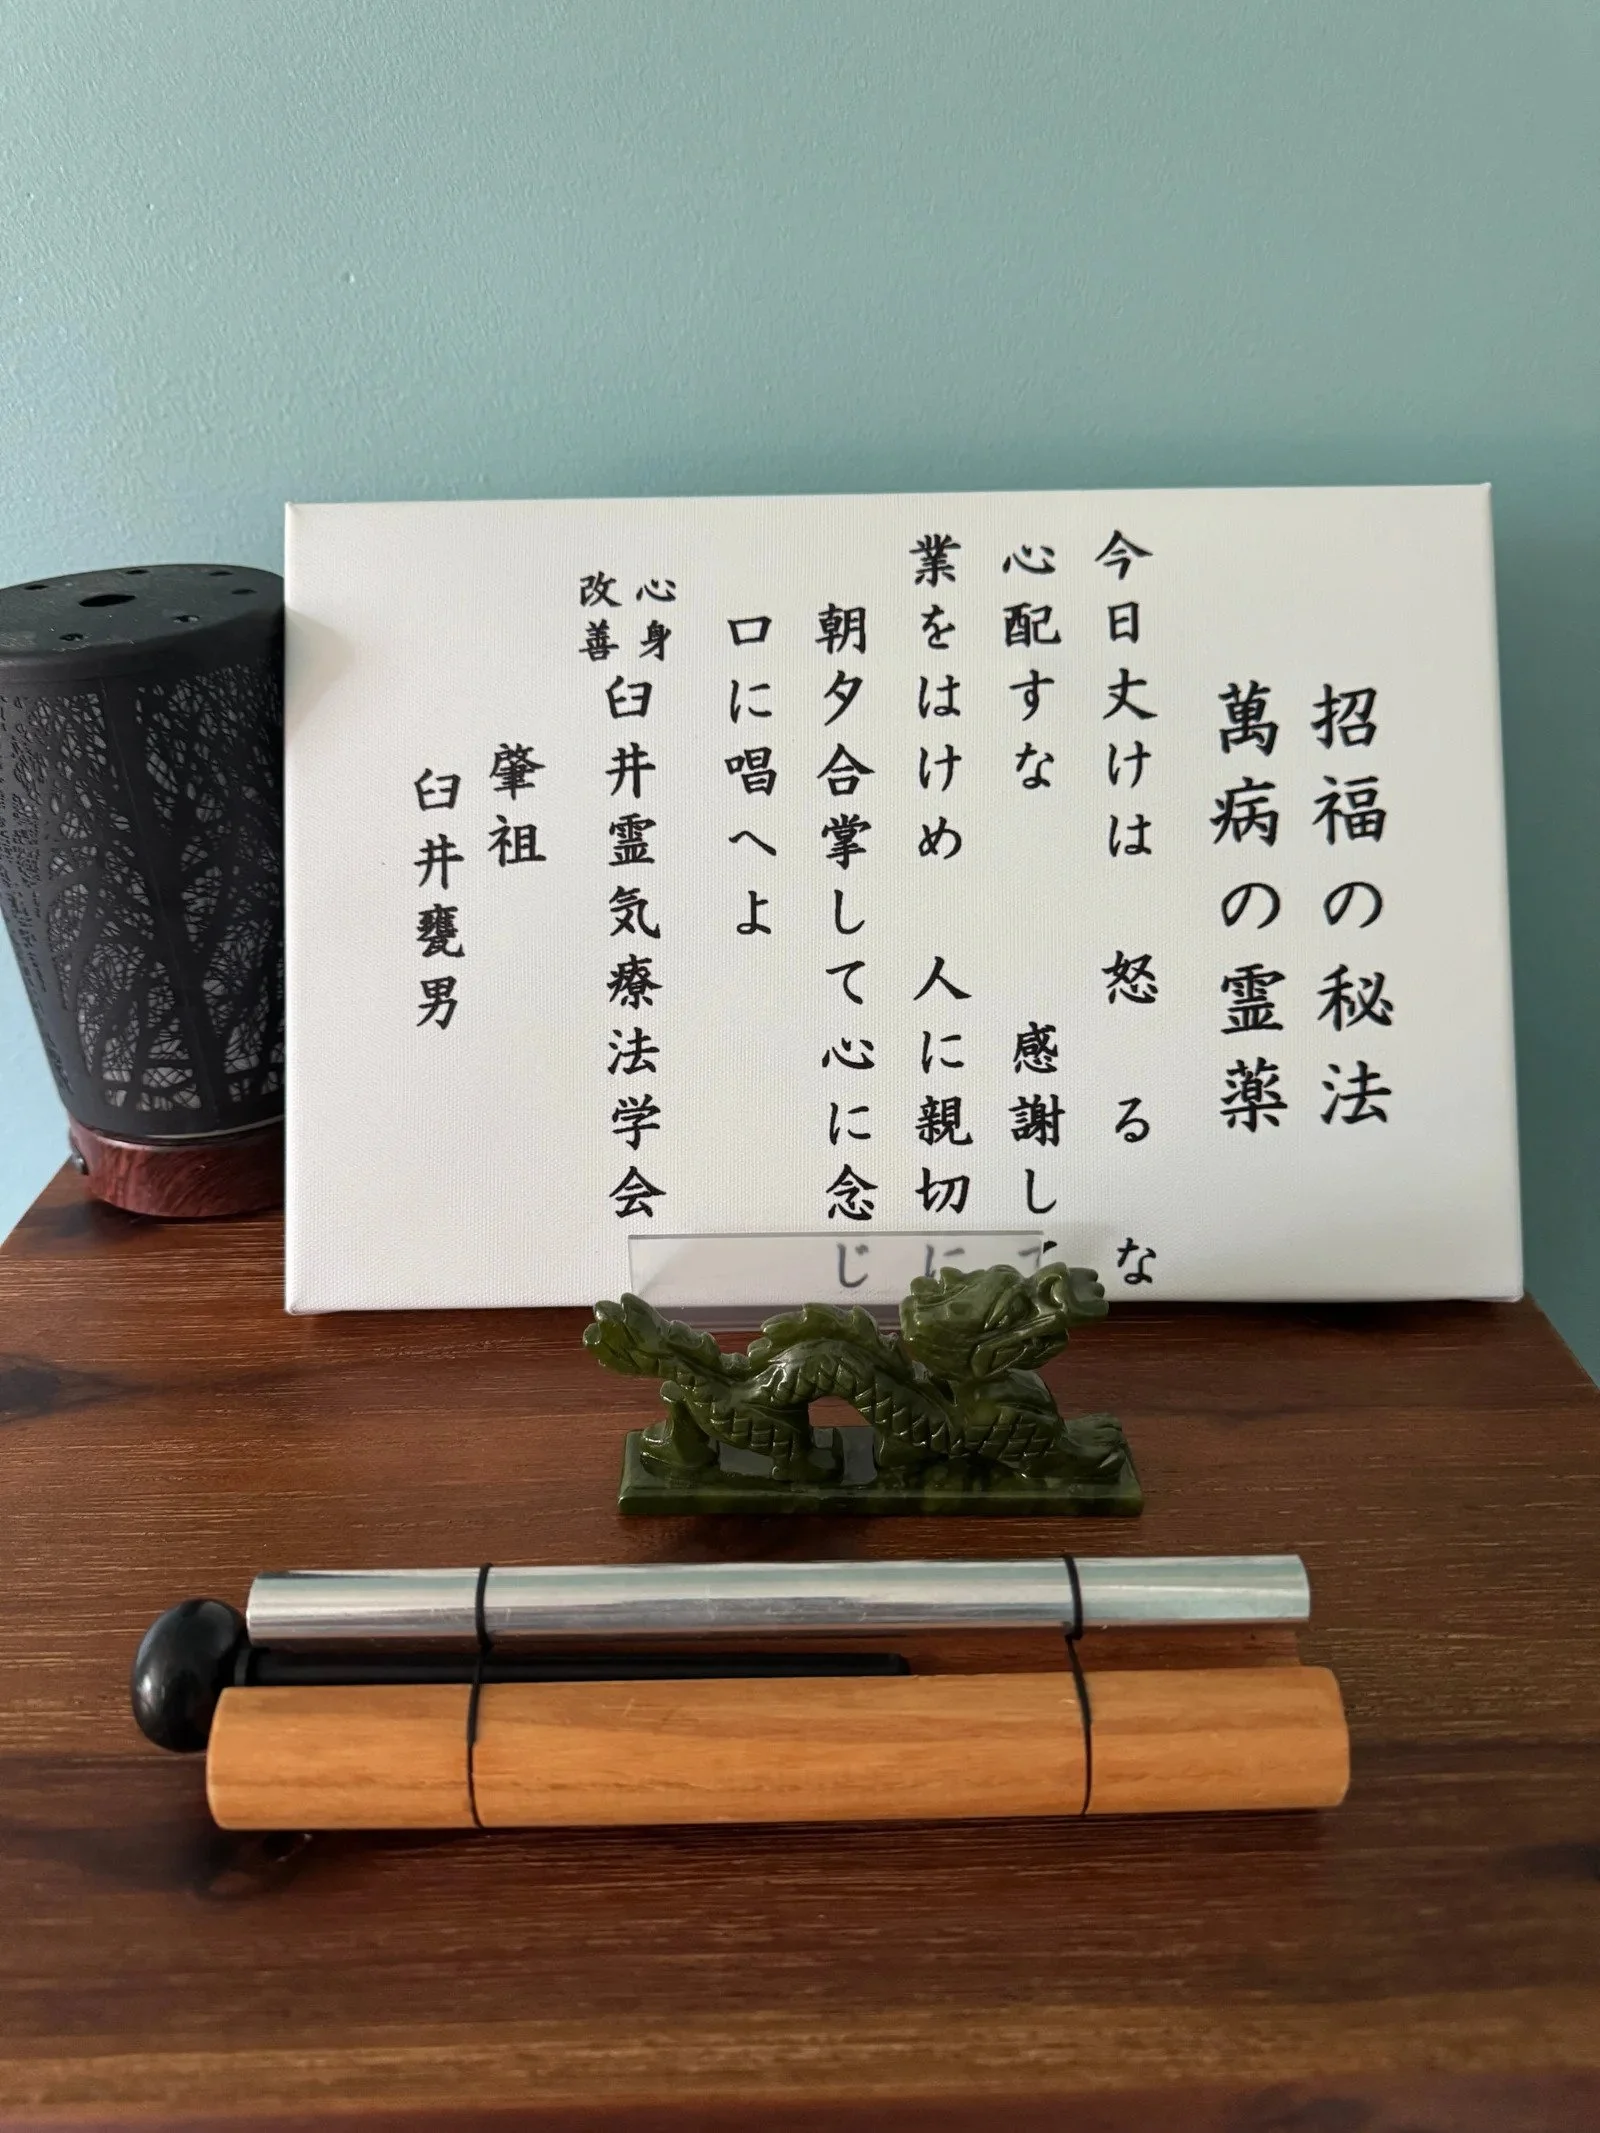 招福の秘法
萬病の霊薬
今日丈けは 怒るな
心配すな 感謝して
業をはけめ 人に親切に
朝夕合掌して心に念じ
口に唱へよ
心身
改善
臼井霊気療法学会
肇祖
臼井甕男